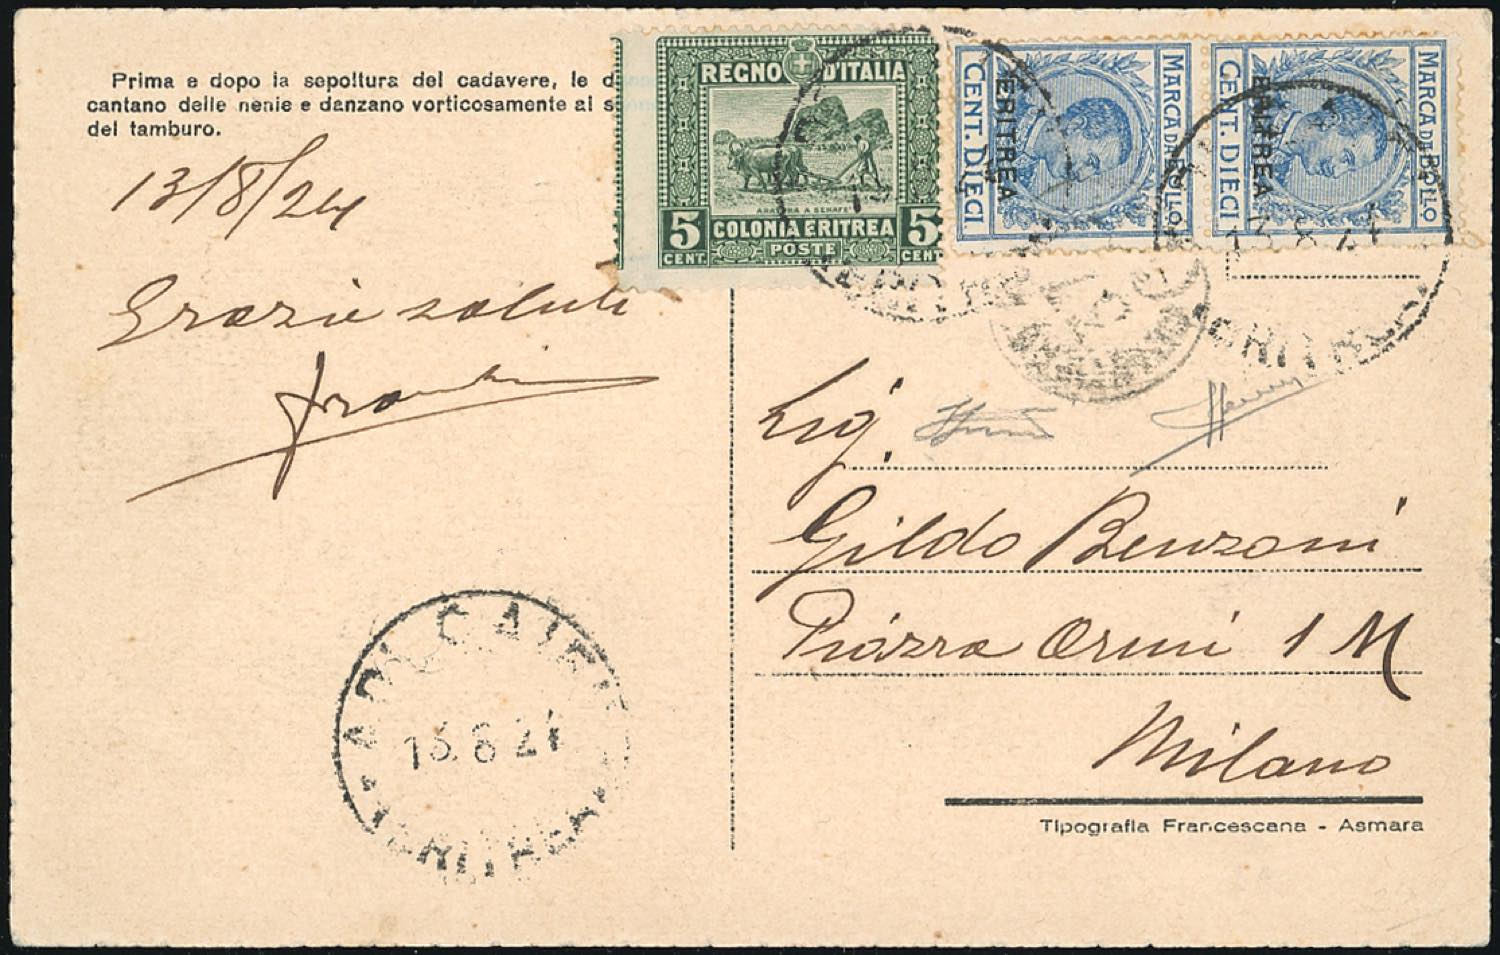 Prima e dopo la sepoltura del cadavere, le d
cantano delle nenie e danzano vorticosamente al s
del tamburo.
13/8/24
Grazie saluti
REGNO D'ITALIA
ARATURA A SENAFÈ
5 COLONIA ERITREA 5
CENT. POSTE CENT.
MARCA DA BOLLO
CENT. DIECI
ERITREA
MARCA DA BOLLO
CENT. DIECI
ERITREA
Sig.
Gildo Benzoni
Piazza Ormi 1 M
Milano
Tipografia Francescana - Asmara
ADI CAIEH
13.8.24
ERITREA